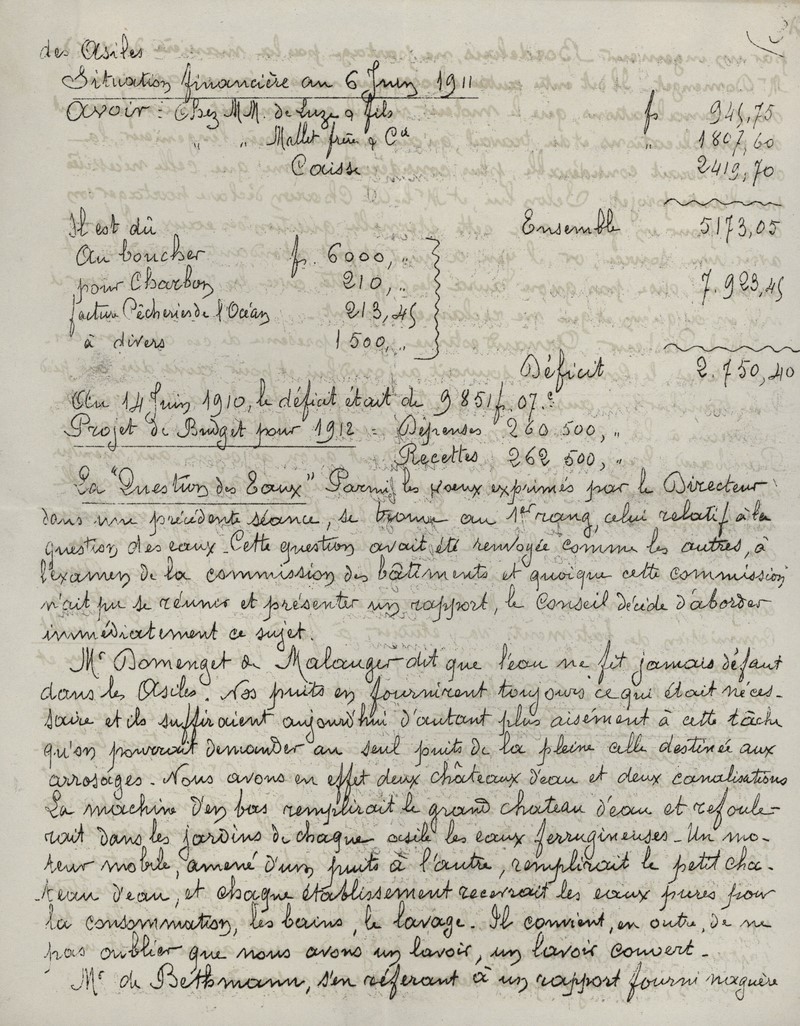 des Asiles
Situation financière au 6 Juin 1911
Avoir : Chez MM. de Luze & fils f 945,75
„ „ Mallet frère & Cie „ 1807,60
Caisse 2419,70
Il est dû Ensemble 5173,05
Au boucher f. 6000, „
pour Charbon 210, „ 7.923,45
facture Pêcheries de l'Océan 213,45
à divers 1500, „
Déficit 2.750,40
Au 14 Juin 1910, le déficit était de 9851f.07.c
Projet de Budget pour 1912 = Dépenses 260 500, „
Recettes 262 500, „
La "Question des Eaux" Parmi les voeux exprimés par le Directeur
dans une précédente séance, se trouve au 1er rang, celui relatif à la
question des eaux. Cette question avait été renvoyée comme les autres, à
l'examen de la commission des bâtiments et quoique cette commission
n'ait pu se réunir et présenter un rapport, le Conseil décide d'aborder
immédiatement ce sujet.
Mr Domenget de Malauger dit que l'eau ne fit jamais défaut
dans les Asiles. Nos puits en fournirent toujours ce qui était néces-
saire et ils suffiraient aujourd'hui d'autant plus aisément à cette tâche
qu'on pourrait demander au seul puits de la pleine celle destinée aux
arrosages. Nous avons en effet deux châteaux d'eau et deux canalisations
La machine d'en bas remplirait le grand chateau d'eau et refoule-
rait dans les jardins de chaque asile les eaux ferrugineuses - Un mo-
teur mobile, amené d'un puits à l'autre, remplirait le petit cha-
teau d'eau, et chaque établissement recevrait les eaux pures pour
la consommation, les bains, le lavage. Il convient, en outre, de ne
pas oublier que nous avons un lavoir, un lavoir couvert -
Mr de Bethmann, s'en référant à un rapport fourni naguère